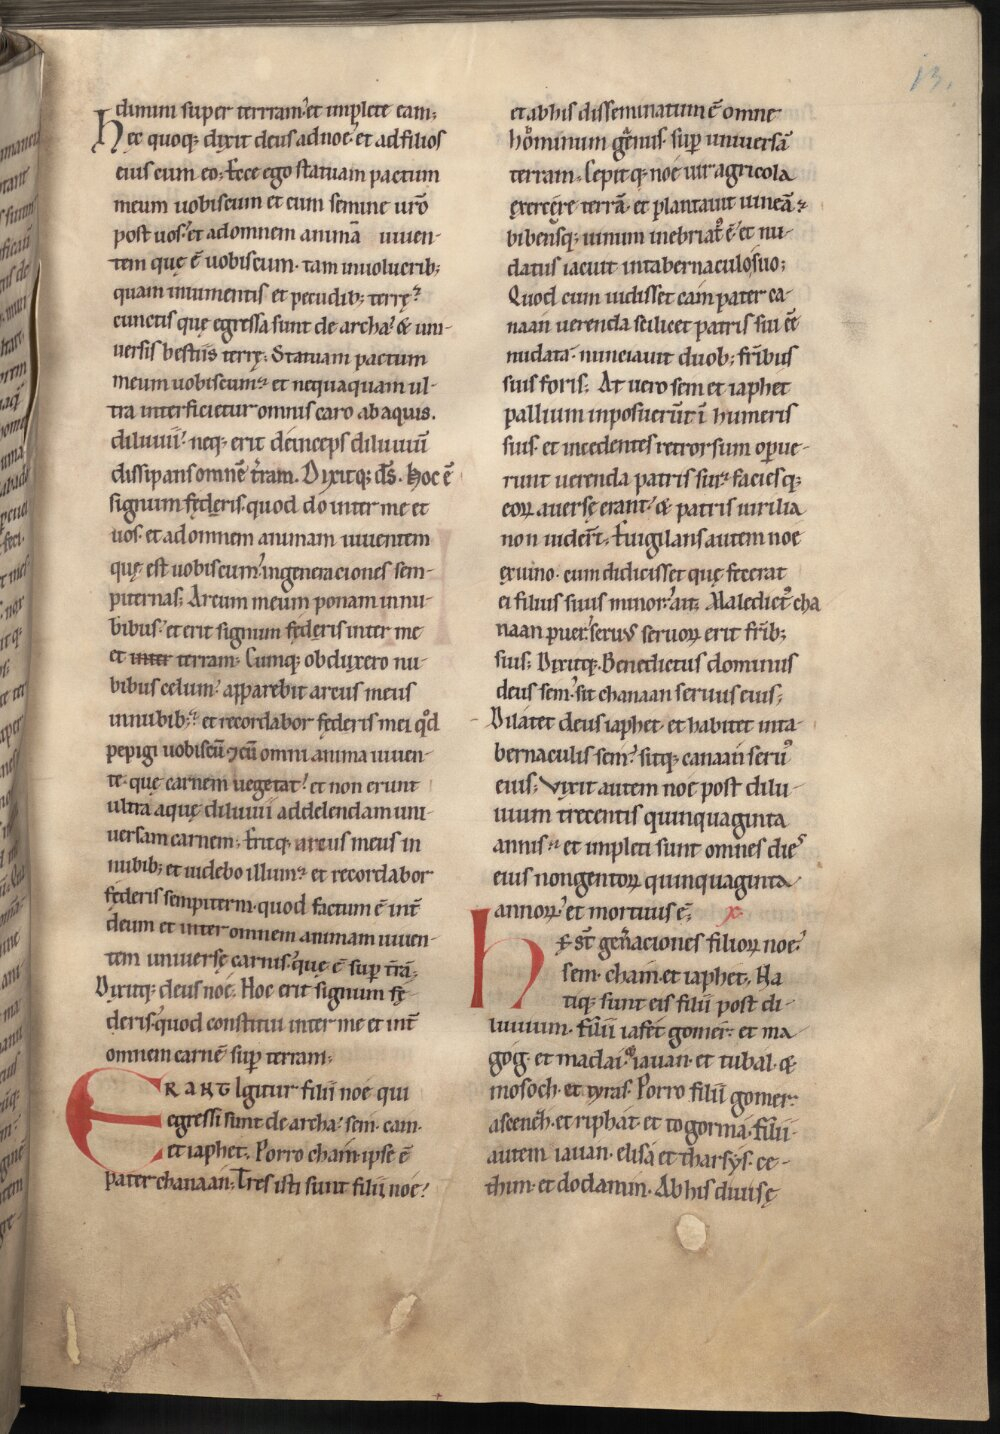 13.
dimini super terram. et implete eam;
hec quoq; dixit deus ad noe. et ad filios
eius cum eo; Ecce ego statuam pactum
meum uobiscum et cum semine ur̄o
post uos. et ad omnem animā uiuen-
tem quę ē uobiscum. tam in uolucrib;
quam in iumentis et pecudib; terrę.
cunctis quę egressa sunt de archa. & uni-
uersis bestiis terrę; Statuam pactum
meum uobiscum. et nequaquam ul-
tra interficietur omnis caro ab aquis.
diluuii. neq; erit deinceps diluuiū
dissipans omnē t̄ram. Dixitq; d̄s. Hoc ē
signum fęderis. quod do inter me et
uos. et ad omnem animam uiuentem
quę est uobiscum. in generaciones sem-
piternas; Arcum meum ponam in nu-
bibus. et erit signum fęderis inter me
et inter terram. Cumq; obduxero nu-
bibus celum. apparebit arcus meus
in nubib;. et recordabor fęderis mei qd̄
pepigi uobiscū. ⁊ cū omni anima uiuen-
te. quę carnem uegetat. et non erunt
ultra aquę diluuii ad delendam uni-
uersam carnem; Eritq; arcus meus in
nubib; et uidebo illum. et recordabor
fęderis sempiterni. quod factum ē int̄
deum et inter omnem animam uiuen-
tem uniuersę carnis. quę ē sup t̄rā;
Dixitq; deus noe; Hoc erit signum fę-
deris. quod constitui inter me et int̄
omnem carnē sup terram;
ERANT Igitur filii noe qui
egressi sunt de archa. sem. cam.
et iaphet; Porro cham. ipse ē
pater chanaan; Tres isti sunt filii noe.
et ab his disseminatum ē omne
hominum gen̄us. sup uniuersā
terram; Cepitq; noe uir agricola
exercere terrā. et plantauit uineā.
bibensq; uinum inebriat᷒ ē. et nu-
datus iacuit in tabernaculo suo;
Quod cum uidisset cam pater ca-
naan uerenda scilicet patris sui ēē
nudata. nunciauit duob; fr̄ibus
suis foris; At uero sem et iaphet
pallium inposuerūt ī humeris
suis. et incedentes retrorsum opue-
runt uerenda patris sui. faciesq;
eoꝝ auersę erant. & patris uirilia
non uider̄t; Euigilans autem noe
ex uino. cum didicisset quę fecerat
ei filius suus minor. ait; Maledict᷒ cha
naan puer. seruus seruoꝝ erit fr̄ib;
suis; Dixitq; Benedictus dominus
deus sem. sit chanaan seruus eius;
Dilatet deus iaphet. et habitet in ta-
bernaculis sem. sitq; canaan seru᷒
eius; Vixit autem noe post dilu-
uium trecentis quinquaginta
annis. et impleti sunt omnes dies
eius nongentoꝝ quinquaginta
annoꝝ. et mortuus ē; x.
hę st̄ gen̄aciones filioꝝ noe.
sem. cham. et iaphet; Na
tiq; sunt eis filii post di-
luuium. filii iafet gomer. et ma
gog. et madai. & iauan. et tubal. &
mosoch. et tyras. Porro filii gomer.
aschenez. et riphat. et togorma. filii
autem iauan. elisa et tharsys. ce-
thim. et dodanim. Ab his diuisę